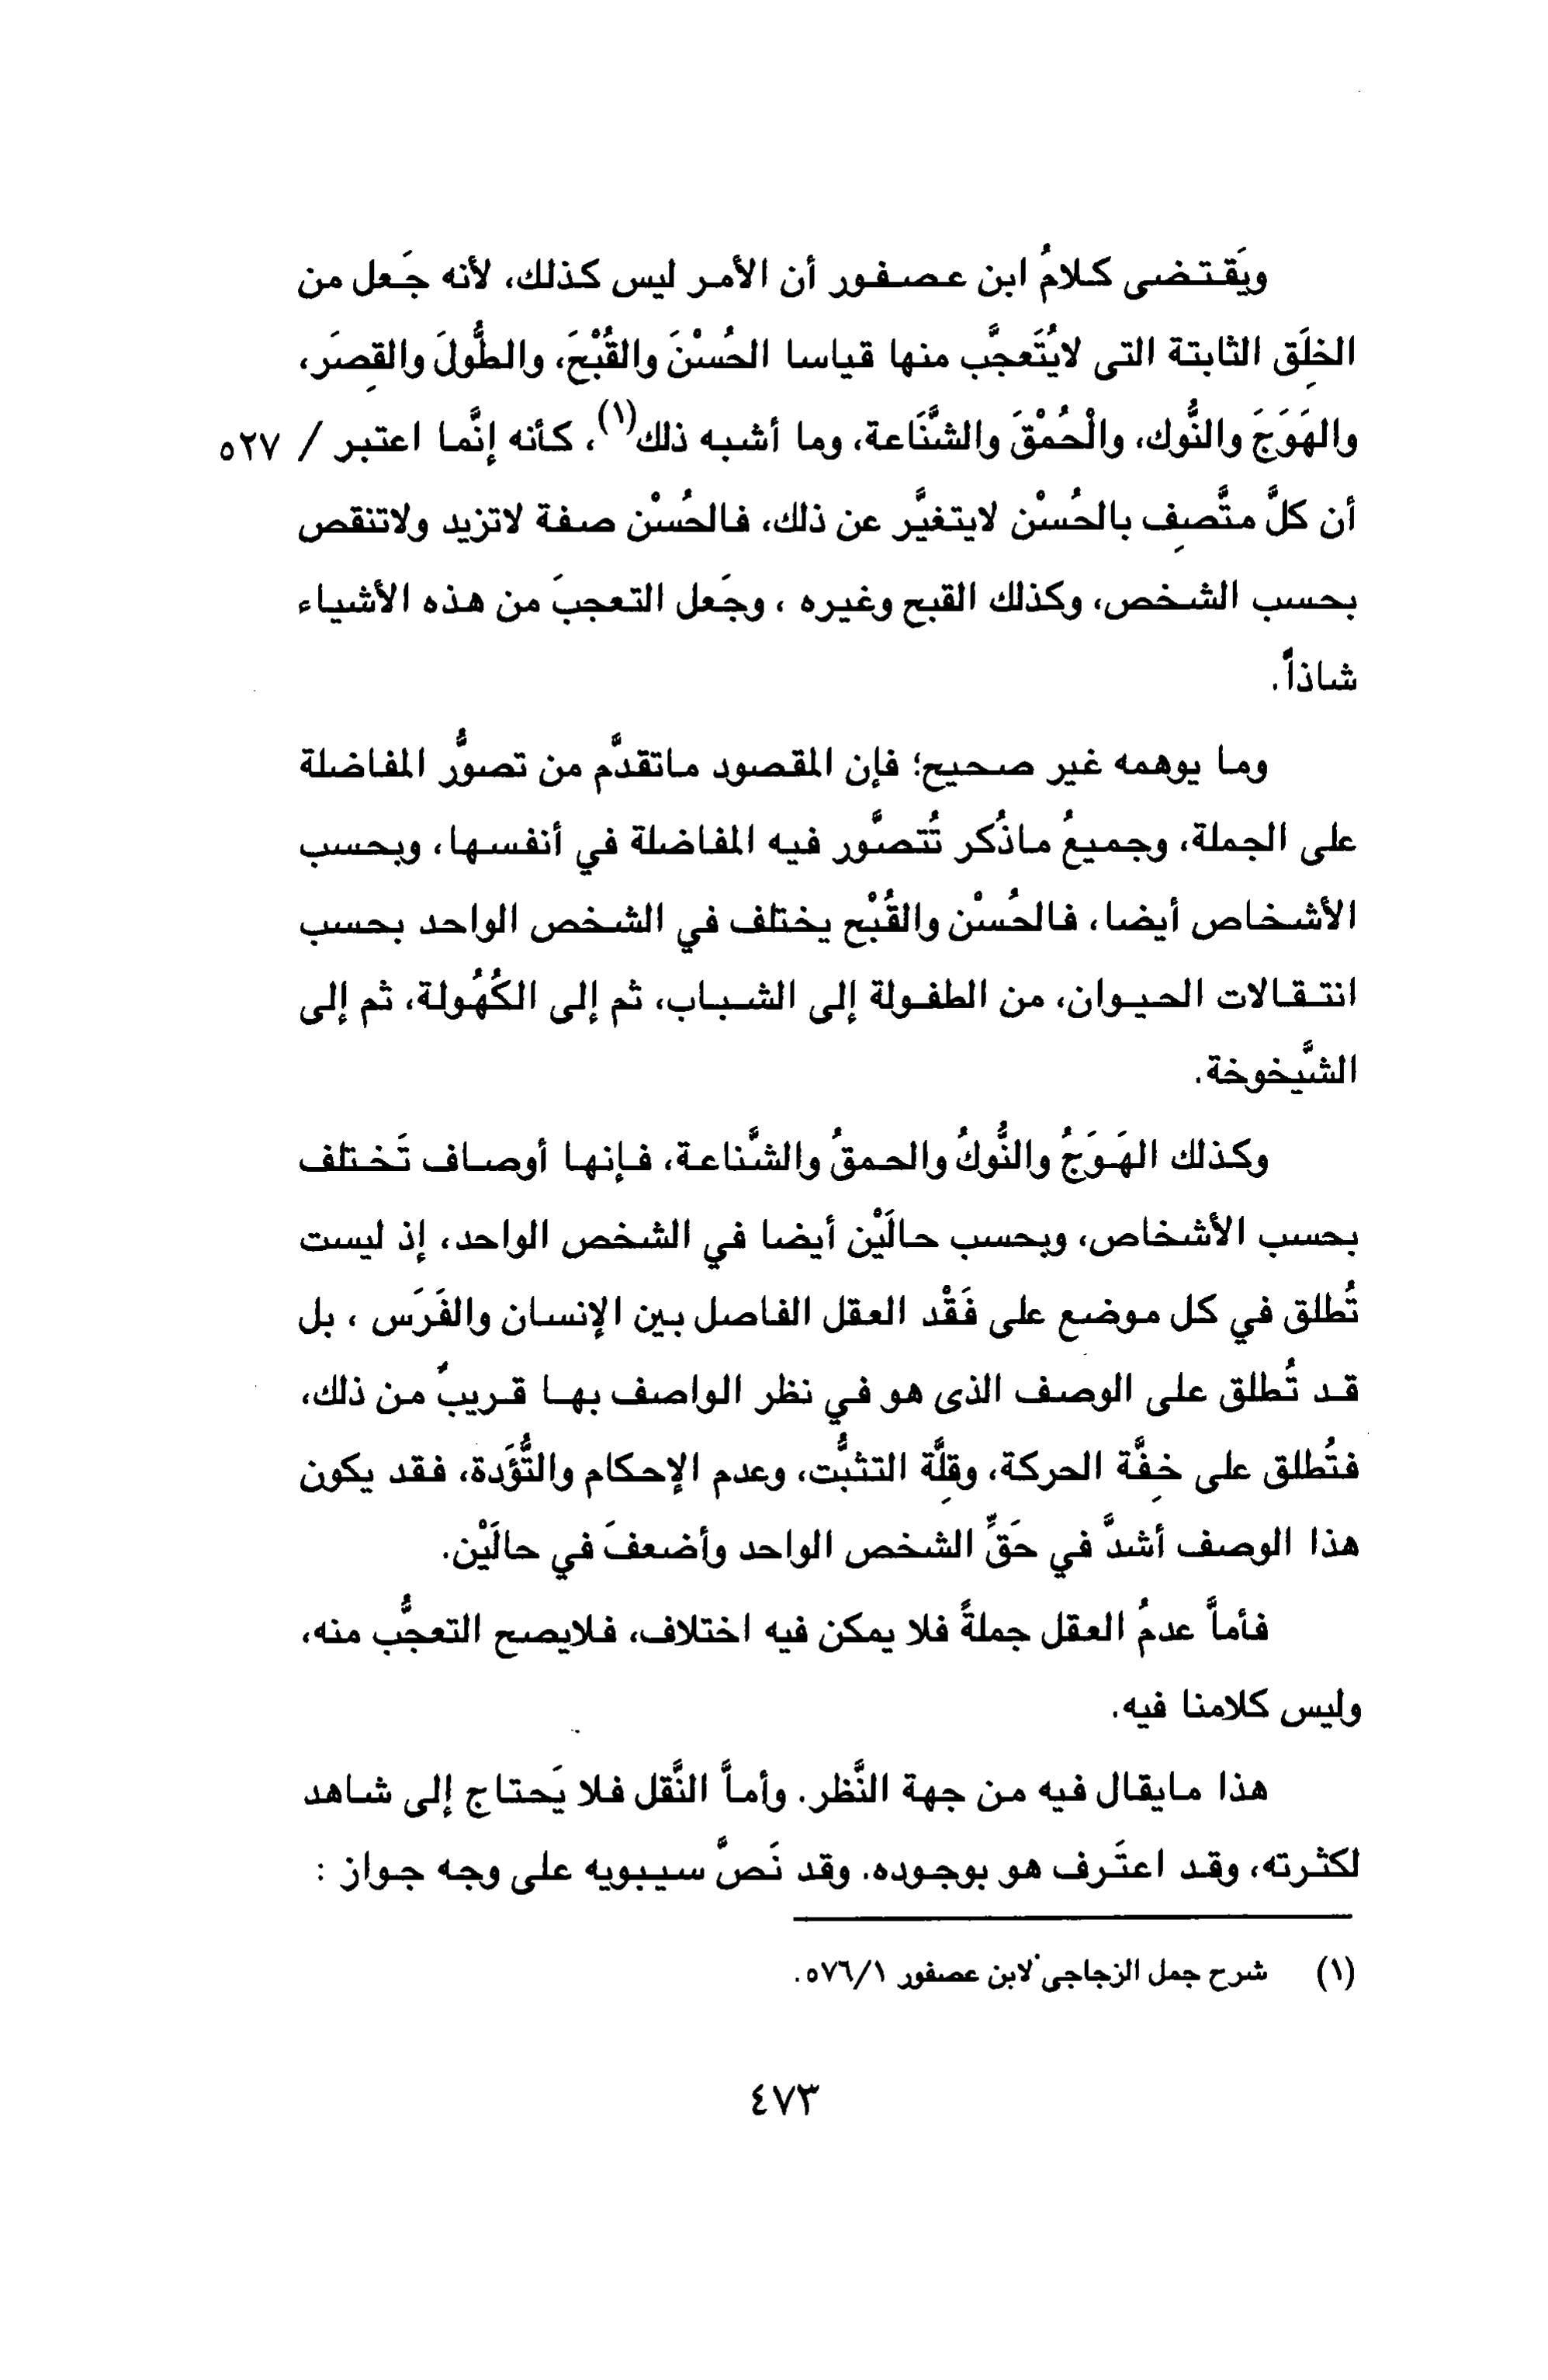 ويَقـتـضى كـلامُ ابن عـصـفـور أن الأمـر ليس كـذلك، لأنه جَـعل من
الخلَق الثابتة التى لايُتَعجَّب منها قياسا الحُسْنَ والقُبْحَ، والطُّولَ والقصَر،
والهَوَجَ والنُّوك، والْحُمْقَ والشَّنَاعة، وما أشبه ذلك(١)، كأنه إنَّما اعتبر / ٥٢٧
أن كلَّ متَّصِف بالحُسْن لايتغيَّر عن ذلك، فالحُسْن صفة لاتزيد ولاتنقص
بحسب الشخص، وكذلك القبح وغيره ، وجَعل التعجبَ من هذه الأشياء
شاذاً.
وما يوهمه غير صحيح؛ فإن المقصود ماتقدَّم من تصوُّر المفاضلة
على الجملة، وجميعُ ماذُكر تُتصَّور فيه المفاضلة في أنفسها، وبحسب
الأشخاص أيضا، فالحُسْن والقُبْح يختلف في الشخص الواحد بحسب
انتقالات الحيوان، من الطفولة إلى الشباب، ثم إلى الكُهُولة، ثم إلى
الشَّيخوخة.
وكذلك الهَوَجُ والنُّوكُ والحمقُ والشَّناعة، فإنها أوصاف تَختلف
بحسب الأشخاص، وبحسب حالَيْن أيضا في الشخص الواحد، إذ ليست
تُطلق في كل موضع على فَقْد العقل الفاصل بين الإنسان والفَرَس ، بل
قد تُطلق على الوصف الذى هو في نظر الواصف بها قريبٌ من ذلك،
فتُطلق على خِفَّة الحركة، وقِلَّة التثبُّت، وعدم الإحكام والتُّؤَدة، فقد يكون
هذا الوصف أشدَّ في حَقِّ الشخص الواحد وأضعفَ في حالَيْن.
فأمَّا عدمُ العقل جملةً فلا يمكن فيه اختلاف، فلايصح التعجُّب منه،
وليس كلامنا فيه.
هذا مايقال فيه من جهة النَّظر. وأمَّا النَّقل فلا يَحتاج إلى شاهد
لكثرته، وقد اعتَرف هو بوجوده. وقد نَصَّ سيبويه على وجه جواز :
(١) شرح جمل الزجاجى لابن عصفور ٥٧٦/١.
٤٧٣